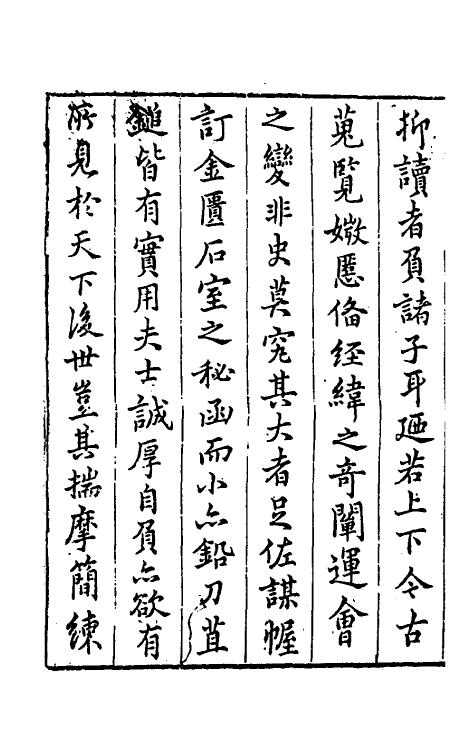 抑讀者負諸子耳廼若上下今古
蒐覽媺慝俻経緯之竒闡運會
之變非史莫究其大者足佐謀幄
訂金匱石室之秘函而小亦鉛刀苴
鎚皆有實用夫士誠厚自負亦欲有
所見扵天下後世豈其揣摩簡練